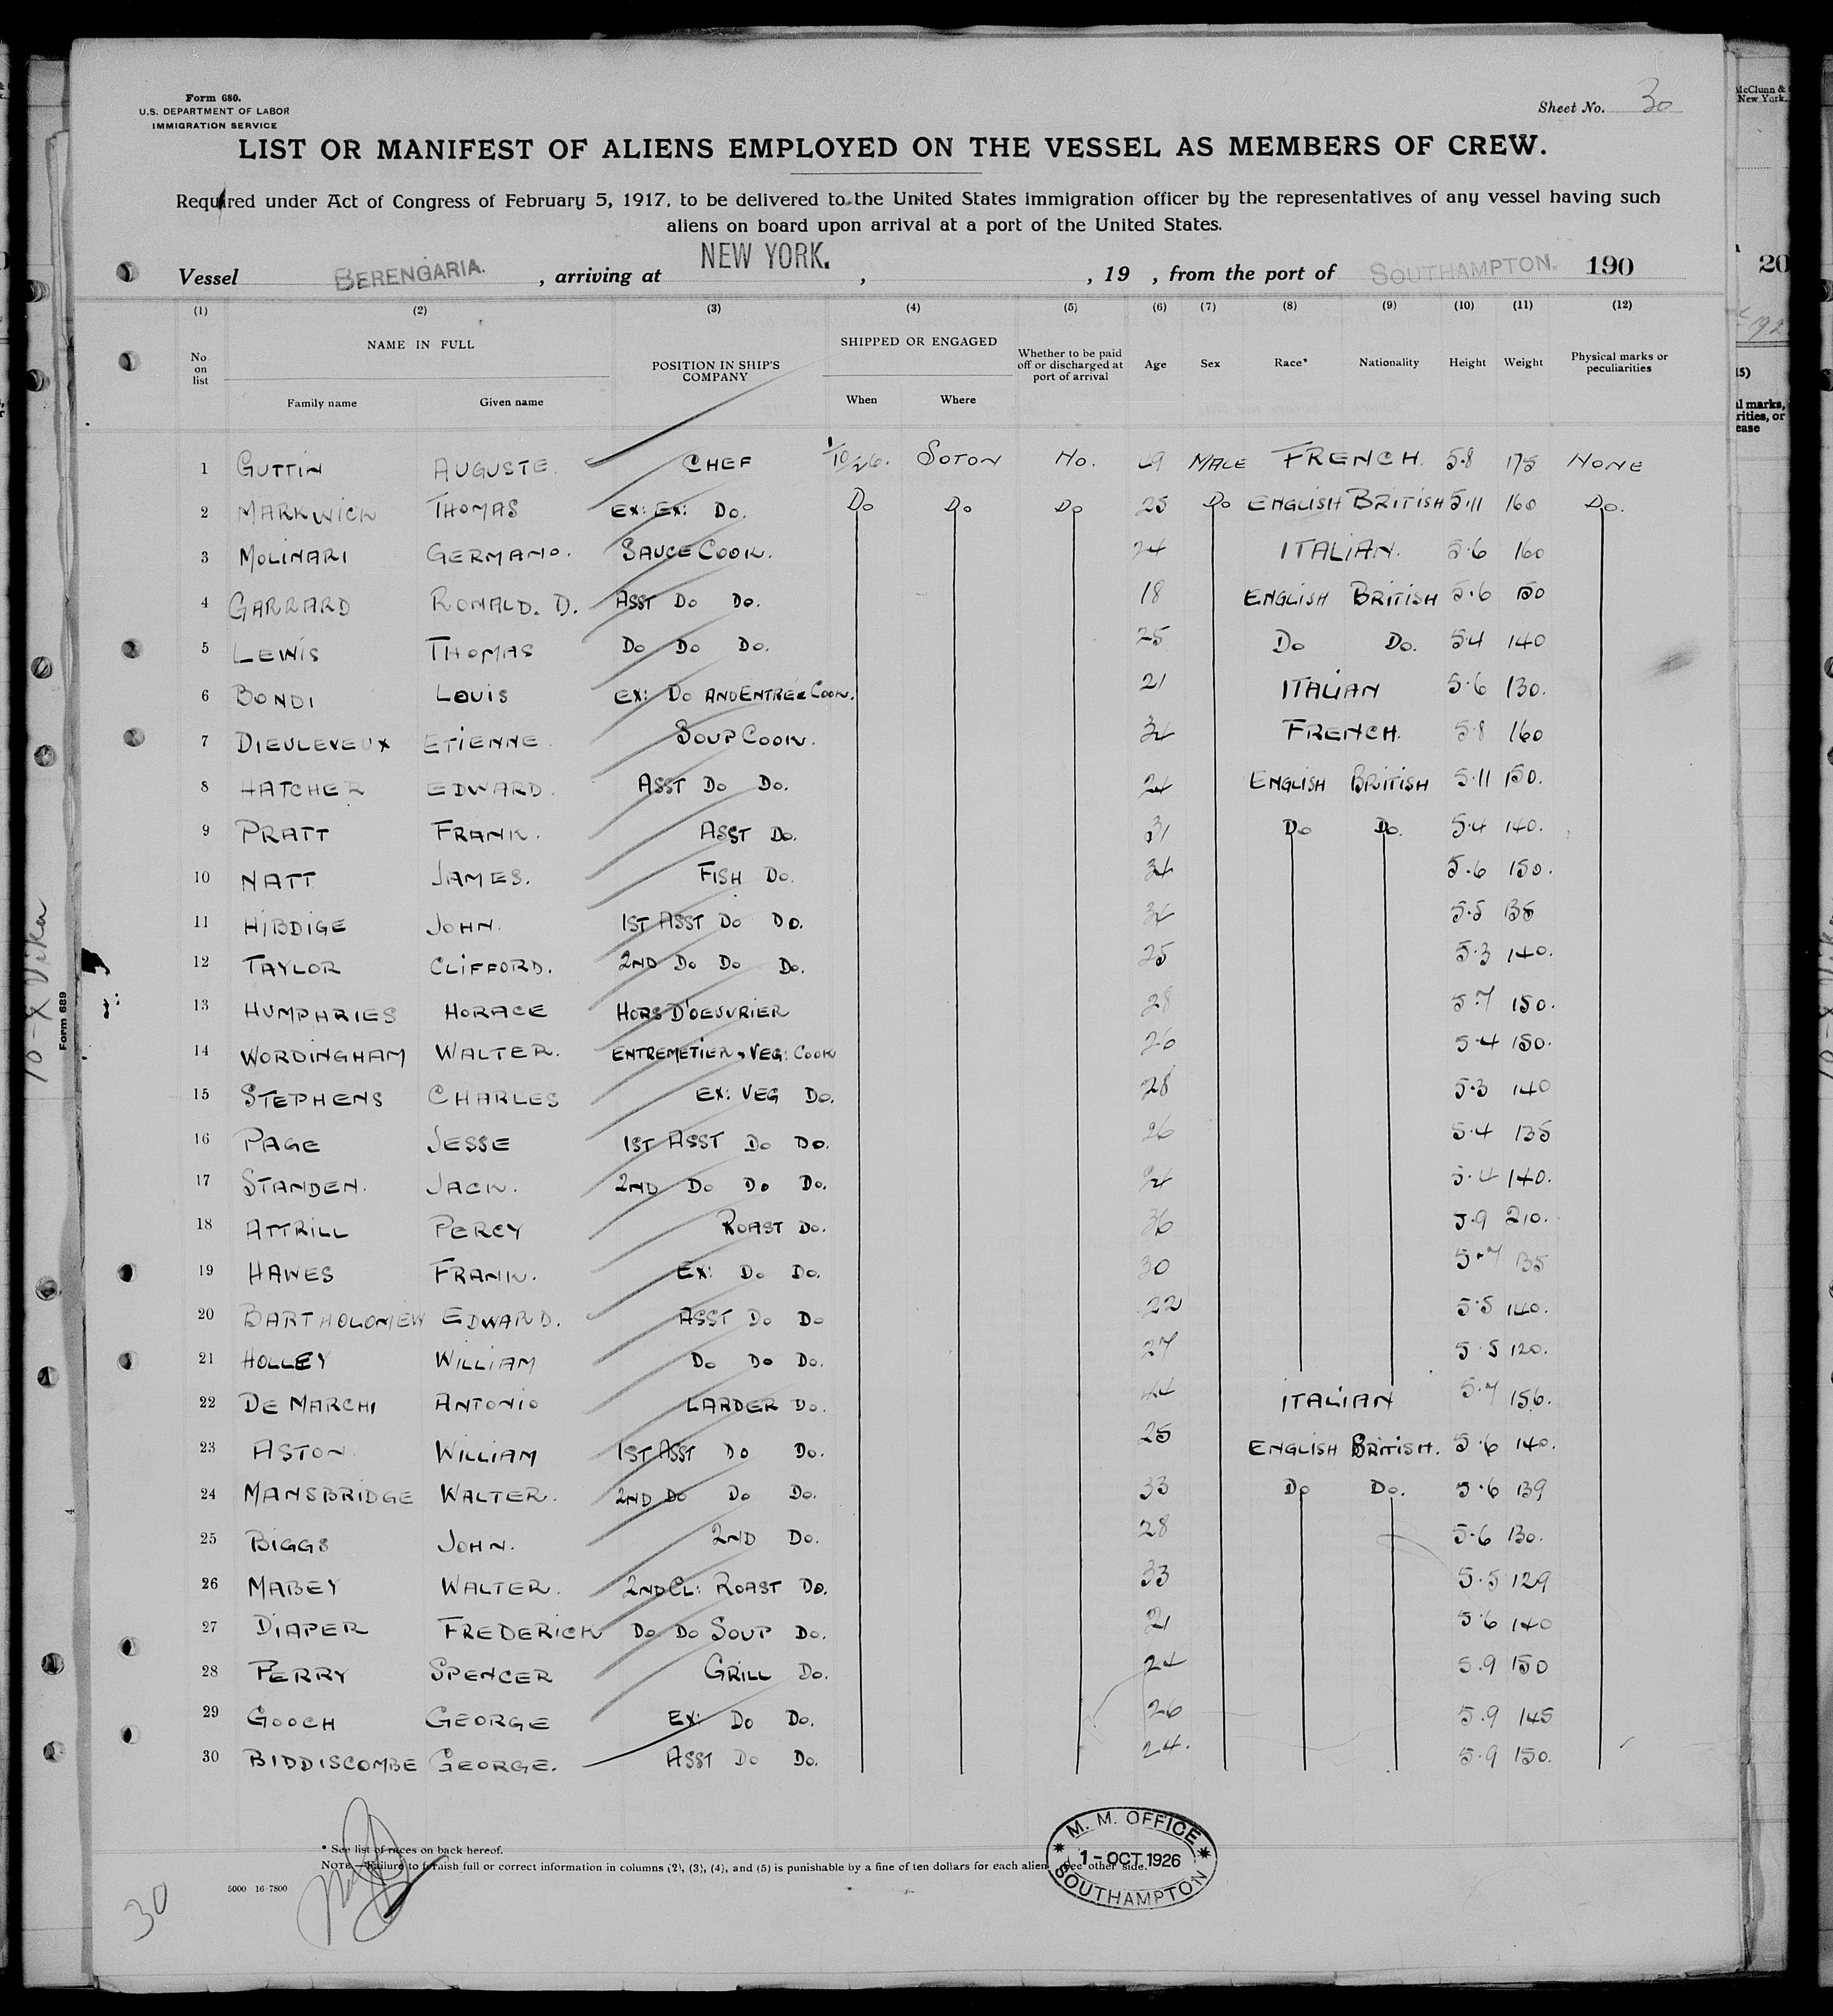 Form 680.
U.S. DEPARTMENT OF LABOR
IMMIGRATION SERVICE
Sheet No. 30
LIST OR MANIFEST OF ALIENS EMPLOYED ON THE VESSEL AS MEMBERS OF CREW.
Required under Act of Congress of February 5, 1917, to be delivered to the United States immigration officer by the representatives of any vessel having such
aliens on board upon arrival at a port of the United States.
Vessel BERENGARIA. , arriving at NEW YORK. , , 19 , from the port of SOUTHAMPTON. 190
(1) (2) (3) (4) (5) (6) (7) (8) (9) (10) (11) (12)
No on list NAME IN FULL POSITION IN SHIP'S COMPANY SHIPPED OR ENGAGED Whether to be paid off or discharged at port of arrival Age Sex Race* Nationality Height Weight Physical marks or peculiarities
Family name Given name When Where
1 GUTTIN AUGUSTE. CHEF 1/10/26. SOTON NO. 49 MALE FRENCH. 5.8 175 NONE
2 MARKWICK THOMAS EX: EX: DO. DO DO DO 25 DO ENGLISH BRITISH 5.11 160 DO.
3 MOLINARI GERMANO. SAUCE COOK. 24 ITALIAN. 5.6 160
4 GARRARD RONALD. D. ASST DO DO. 18 ENGLISH BRITISH 5.6 150
5 LEWIS THOMAS DO DO DO. 25 DO DO. 5.4 140
6 BONDI LOUIS EX: DO AND ENTRÉE COOK. 21 ITALIAN 5.6 130.
7 DIEULEVEUX ETIENNE. SOUP COOK. 34 FRENCH. 5.8 160
8 HATCHER EDWARD. ASST DO DO. 24 ENGLISH BRITISH 5.11 150.
9 PRATT FRANK. ASST DO. 31 DO DO. 5.4 140.
10 NATT JAMES. FISH DO. 34 5.6 150.
11 HIBDIGE JOHN. 1ST ASST DO DO. 34 5.5 135
12 TAYLOR CLIFFORD. 2ND DO DO DO. 25 5.3 140.
13 HUMPHRIES HORACE HORS D'OEUVRIER 28 5.7 150.
14 WORDINGHAM WALTER. ENTREMETIER & VEG: COOK 26 5.4 150.
15 STEPHENS CHARLES EX: VEG DO. 28 5.3 140
16 PAGE JESSE 1ST ASST DO DO. 26 5.4 135
17 STANDEN. JACK. 2ND DO DO DO. 24 5.4 140.
18 ATTRILL PERCY ROAST DO. 36 5.9 210.
19 HAWES FRANK. EX: DO DO. 30 5.7 135
20 BARTHOLOMEW EDWARD. ASST DO DO 22 5.5 140.
21 HOLLEY WILLIAM DO DO DO. 27 5.5 120.
22 DE MARCHI ANTONIO LARDER DO. 44 ITALIAN 5.7 156.
23 ASTON WILLIAM 1ST ASST DO DO. 25 ENGLISH BRITISH. 5.6 140.
24 MANSBRIDGE WALTER. 2ND DO DO DO. 33 DO DO. 5.6 139
25 BIGGS JOHN. 2ND DO. 28 5.6 130.
26 MABEY WALTER. 2ND CL: ROAST DO. 33 5.5 129
27 DIAPER FREDERICK DO DO SOUP DO. 21 5.6 140
28 PERRY SPENCER GRILL DO. 24 5.9 150
29 GOOCH GEORGE EX: DO DO. 26 5.9 145
30 BIDDISCOMBE GEORGE. ASST DO DO. 24. 5.9 150.
* See list of races on back hereof.
NOTE.—Failure to furnish full or correct information in columns (2), (3), (4), and (5) is punishable by a fine of ten dollars for each alien. See other side.
5000 16-7800
M. M. OFFICE
1 - OCT 1926
SOUTHAMPTON
30
Form 689
4
McClunn &
New York.
20
15)
al marks,
rities, or
ease